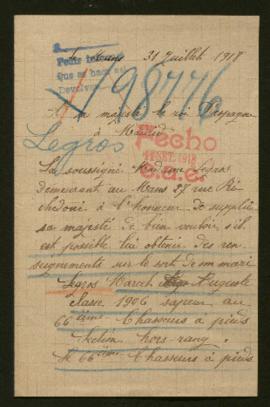 Le Mans 31 Juillet 1918
98776
A sa majesté le roi d'Espagne
à Madrid
Legros
Fecho
SET. 1918
La soussigné Madame Legros
demeurant au Mans 27 rue
à l'honneur de supplier
sa majesté de bien vouloir s'il
est possible lui obtenir des ren
seignements sur le sort de son mari
Legros Marcel Auguste
classe 1906 sapeur au
66 ième Chasseurs à pieds
Section hors-rang.
66 ième Chasseurs à pieds